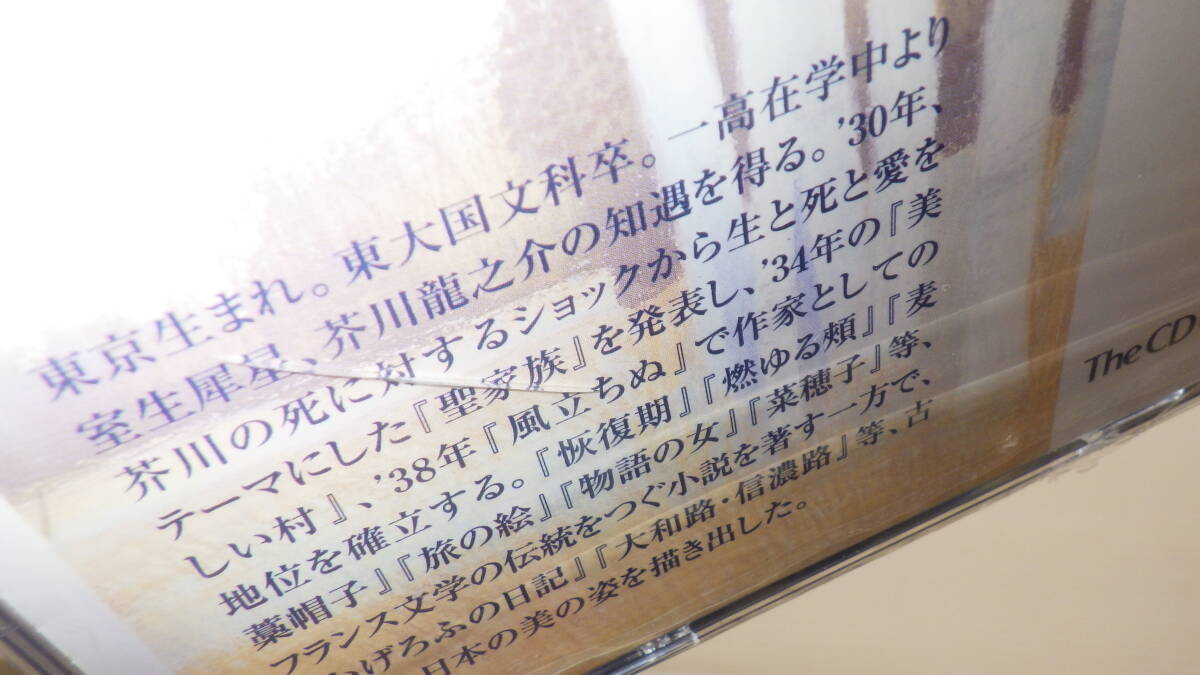 東京生まれ。東大国文科卒。一高在学中より
室生犀星、芥川龍之介の知遇を得る。'30年、
芥川の死に対するショックから生と死と愛を
テーマにした『聖家族』を発表し、'34年の『美
しい村』、'38年『風立ちぬ』で作家としての
地位を確立する。『恢復期』『燃ゆる頰』『麦
藁帽子』『旅の絵』『物語の女』『菜穂子』等、
フランス文学の伝統をつぐ小説を著す一方で、
かげろふの日記』『大和路・信濃路』等、古
日本の美の姿を描き出した。
The CD